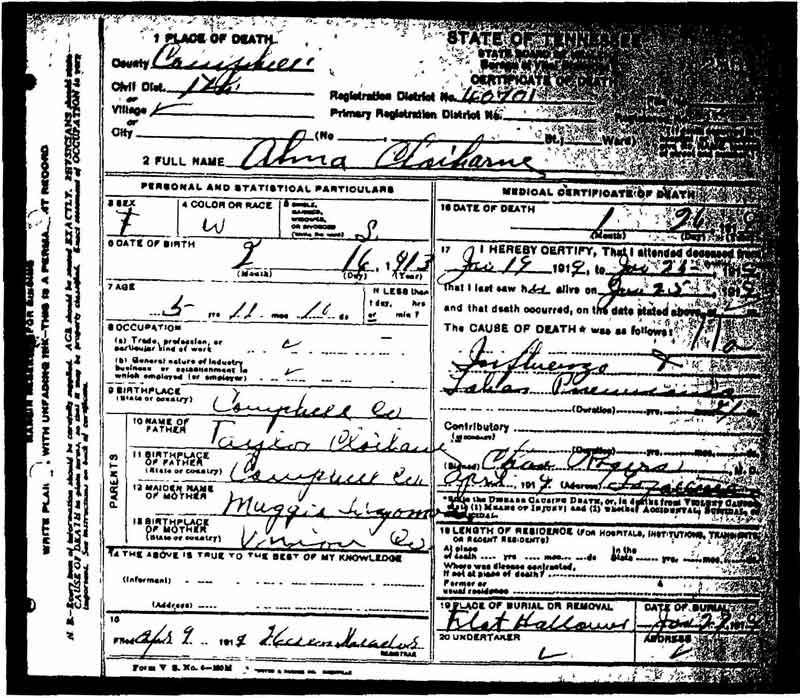 1 PLACE OF DEATH
County Campbell
Civil Dist. 17th
or
Village ✓
or
City (No. St.; Ward)
STATE OF TENNESSEE
STATE BOARD OF
Bureau of Vital Statistics
CERTIFICATE OF DEATH
Registration District No. 40701
Primary Registration District No.
2 FULL NAME Alma Claiborne
PERSONAL AND STATISTICAL PARTICULARS
3 SEX F
4 COLOR OR RACE W
5 SINGLE, MARRIED, WIDOWED, OR DIVORCED (Write the word) S
6 DATE OF BIRTH 2 16, 1913
(Month) (Day) (Year)
7 AGE
5 yrs 11 mos 10 ds
If LESS than 1 day, hrs or min?
8 OCCUPATION
(a) Trade, profession, or particular kind of work ✓
(b) General nature of industry business or establishment in which employed (or employer) ✓
9 BIRTHPLACE
(State or country) Campbell Co
PARENTS
10 NAME OF FATHER Taylor Claiborne
11 BIRTHPLACE OF FATHER
(State or country) Campbell Co
12 MAIDEN NAME OF MOTHER Maggie
13 BIRTHPLACE OF MOTHER
(State or country) Union Co
14 THE ABOVE IS TRUE TO THE BEST OF MY KNOWLEDGE
(Informant)
(Address)
15
Filed Apr 9 1919
REGISTRAR
Form V. S. No. 4—
MEDICAL CERTIFICATE OF DEATH
16 DATE OF DEATH
1 26 1919
(Month) (Day)
17 I HEREBY CERTIFY, That I attended deceased from
Jan 19 1919, to Jan 25 1919
that I last saw her alive on Jan 25 191
and that death occurred, on the date stated above, at
The CAUSE OF DEATH * was as follows:
11a
Influenza &
Lobar Pneumonia
(Duration) yrs. mos.
Contributory
(SECONDARY)
(Duration) yrs. mos.
(Signed) Chas Rogers M. D.
Apr 1919 (Address)
*State the DISEASE CAUSING DEATH, or, in deaths from VIOLENT CAUSES, state (1) MEANS OF INJURY; and (2) whether ACCIDENTAL, SUICIDAL, or HOMICIDAL
18 LENGTH OF RESIDENCE (FOR HOSPITALS, INSTITUTIONS, TRANSIENTS OR RECENT RESIDENTS)
At place of death yrs mos. ds
In the State yrs. mos.
Where was disease contracted, if not at place of death?
Former or usual residence
19 PLACE OF BURIAL OR REMOVAL
Flat Hallow
DATE OF BURIAL
Jan 27 1919
20 UNDERTAKER ✓
ADDRESS ✓
WRITE PLAIN WITH UNFADING INK—THIS IS A PERMA RECORD
N. B.—Every item of information should be carefully supplied. AGE should be stated EXACTLY. PHYSICIANS should state
CAUSE OF DEATH in plain terms, so that it may be properly classified. Exact statement of OCCUPATION is very
important. See instructions on back of certificate.